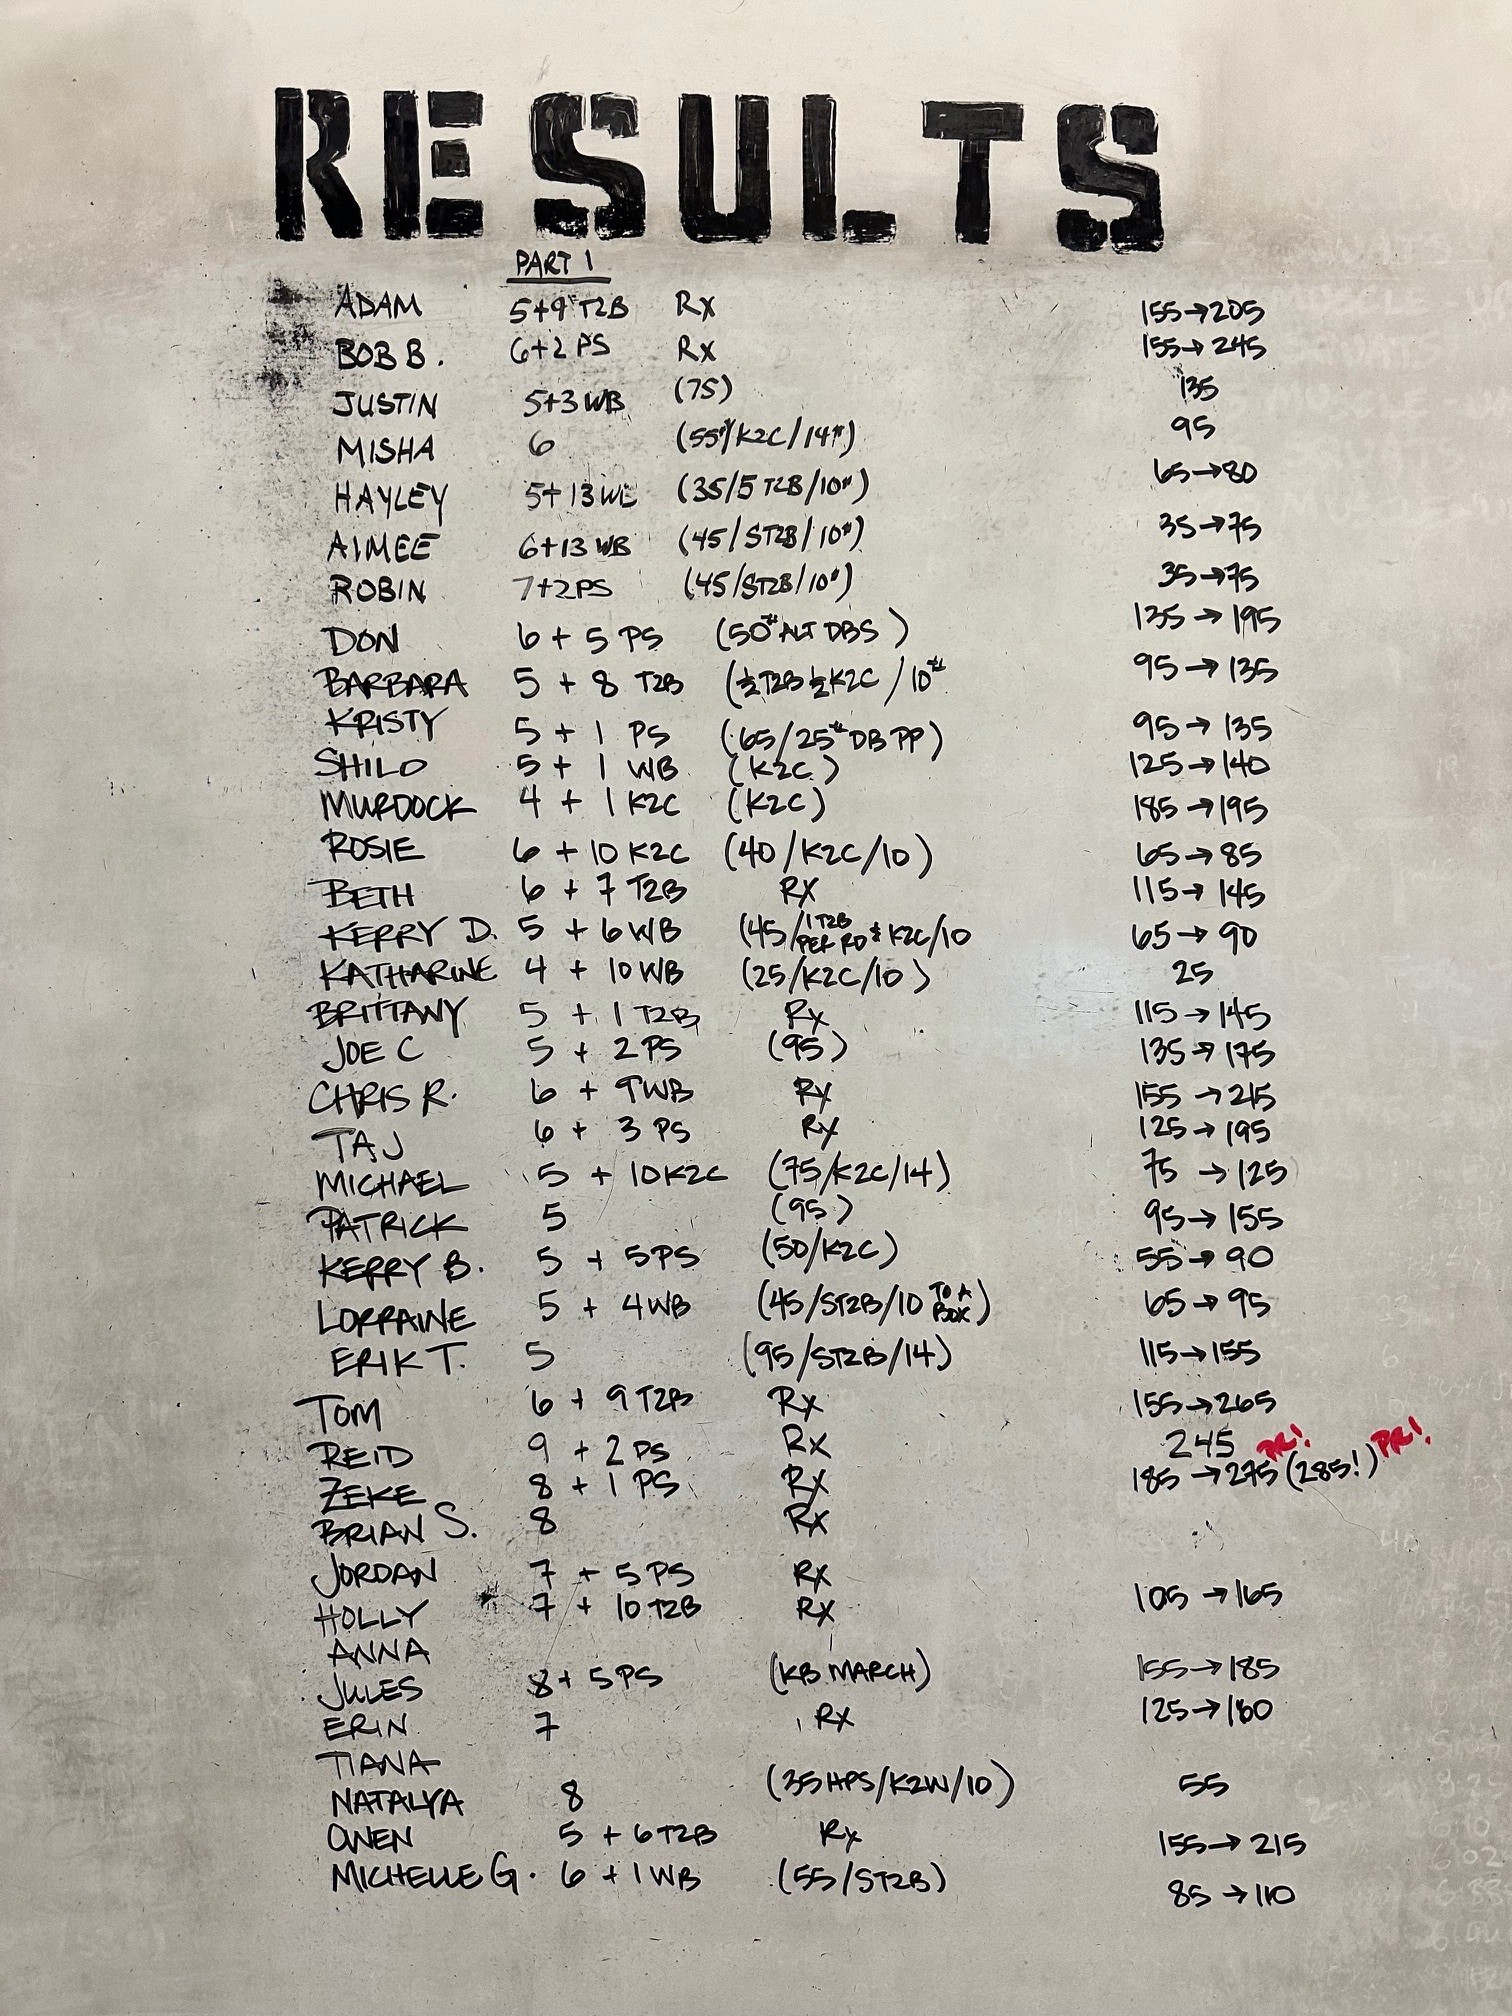 RESULTS
PART 1
ADAM 5+9 T2B Rx 155→205
BOB B. 6+2 PS Rx 155→245
JUSTIN 5+3 WB (75) 135
MISHA 6 (55#/K2C/14#) 95
HAYLEY 5+13 WB (35/5 T2B/10#) 65→80
AIMEE 6+13 WB (45/ST2B/10#) 35→75
ROBIN 7+2PS (45/ST2B/10#) 35→75
DON 6 + 5 PS (50# ALT DBS) 135→195
BARBARA 5 + 8 T2B (½T2B ½K2C/10# 95→135
KRISTY 5 + 1 PS (65/25# DB PP) 95→135
SHILO 5 + 1 WB (K2C) 125→140
MURDOCK 4 + 1 K2C (K2C) 185→195
ROSIE 6 + 10 K2C (40/K2C/10) 65→85
BETH 6 + 7 T2B RX 115→145
KERRY D. 5 + 6 WB (45/1 T2B PER RD & K2C/10 65→90
KATHARINE 4 + 10 WB (25/K2C/10) 25
BRITTANY 5 + 1 T2B Rx 115→145
JOE C 5 + 2 PS (95) 135→175
CHRIS R. 6 + 9WB Rx 155→215
TAJ 6 + 3 PS Rx 125→195
MICHAEL 5 + 10 K2C (75/K2C/14) 75→125
PATRICK 5 (95) 95→155
KERRY B. 5 + 5PS (50/K2C) 55→90
LORRAINE 5 + 4 WB (45/ST2B/10 TO A BOX) 65→95
ERIK T. 5 (95/ST2B/14) 115→155
TOM 6 + 9 T2B Rx 155→265
REID 9 + 2 PS Rx 245 PR! PR!
ZEKE 8 + 1 PS Rx 185→275 (285!)
BRIAN S. 8 Rx
JORDAN 7 + 5 PS Rx
HOLLY 7 + 10 T2B Rx 105→165
ANNA
JULES 8 + 5 PS (KB MARCH) 155→185
ERIN 7 RX 125→180
TIANA
NATALYA 8 (35 HPS/K2W/10) 55
OWEN 5 + 6 T2B Rx 155→215
MICHELLE G. 6 + 1 WB (55/ST2B) 85→110